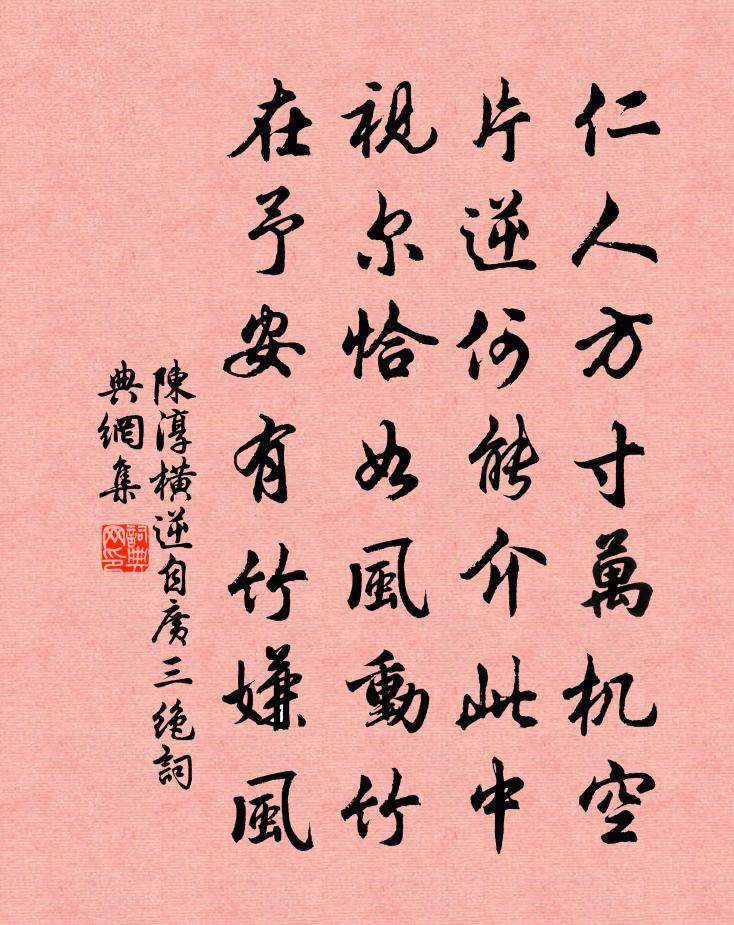 仁人方寸萬机空
片逆何能介此中
視尔恰如風動竹
在予安有竹嫌風
陳淳橫逆自廣三絶詞
典網集
詞典
网印